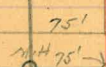 75'
MH 75'